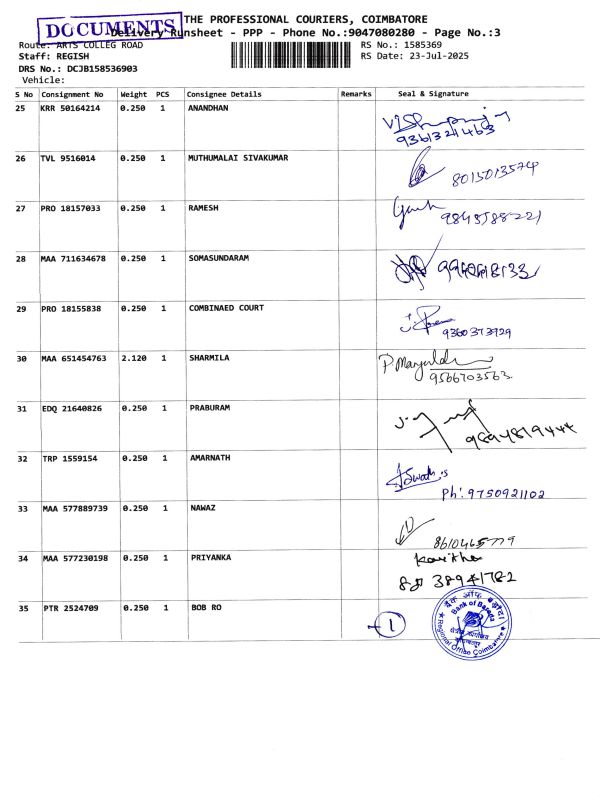 DOCUMENTS
THE PROFESSIONAL COURIERS, COIMBATORE
Delivery Runsheet - PPP - Phone No.:9047080280 - Page No.:3
Route: ARTS COLLEG ROAD
RS No.: 1585369
Staff: REGISH
RS Date: 23-Jul-2025
DRS No.: DCJB158536903
Vehicle:
S No Consignment No Weight PCS Consignee Details Remarks Seal & Signature
25 KRR 50164214 0.250 1 ANANDHAN
9361321463
26 TVL 9516014 0.250 1 MUTHUMALAI SIVAKUMAR
8015013574
27 PRO 18157033 0.250 1 RAMESH
9843588221
28 MAA 711634678 0.250 1 SOMASUNDARAM
29 PRO 18155838 0.250 1 COMBINAED COURT
9360373929
30 MAA 651454763 2.120 1 SHARMILA
9566703563
31 EDQ 21640826 0.250 1 PRABURAM
9894819444
32 TRP 1559154 0.250 1 AMARNATH
Ph: 9750921102
33 MAA 577889739 0.250 1 NAWAZ
8610465779
34 MAA 577230198 0.250 1 PRIYANKA
Kavitha
35 PTR 2524709 0.250 1 BOB RO
1
बैंक ऑफ़ बड़ौदा
Bank of Baroda
Regional Office Coimbatore